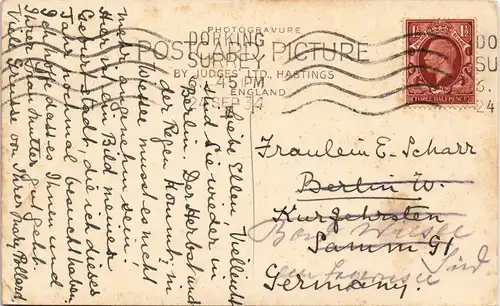 PHOTOGRAVURE
POSTCARD PICTURE
BY JUDGES' LTD. HASTINGS
ENGLAND
DORKING
SURREY
45 PM
SEP 34
DO
SU
24
1½D
1½D
THREE HALFPENCE
Liebe Ellen, Vielleicht
sind Sie wieder in
Berlin. Der Herbst und
der Regen kommt; in
Wiessee muss es nicht
mehr angenehm sein.
Hier ist ein Bild meiner
Geburtstadt, die ich dieses
Jahr nochmal besucht habe.
Ich hoffe dass es Ihnen und
Ihrer Frau Mutter gut geht.
Viele Grüsse von Ihrer Mary Pollard.
Fraulein E. Scharr
Berlin W.
Kurfürsten
Damm 91
Bad Wiessee
am Tegernsee
Germany.